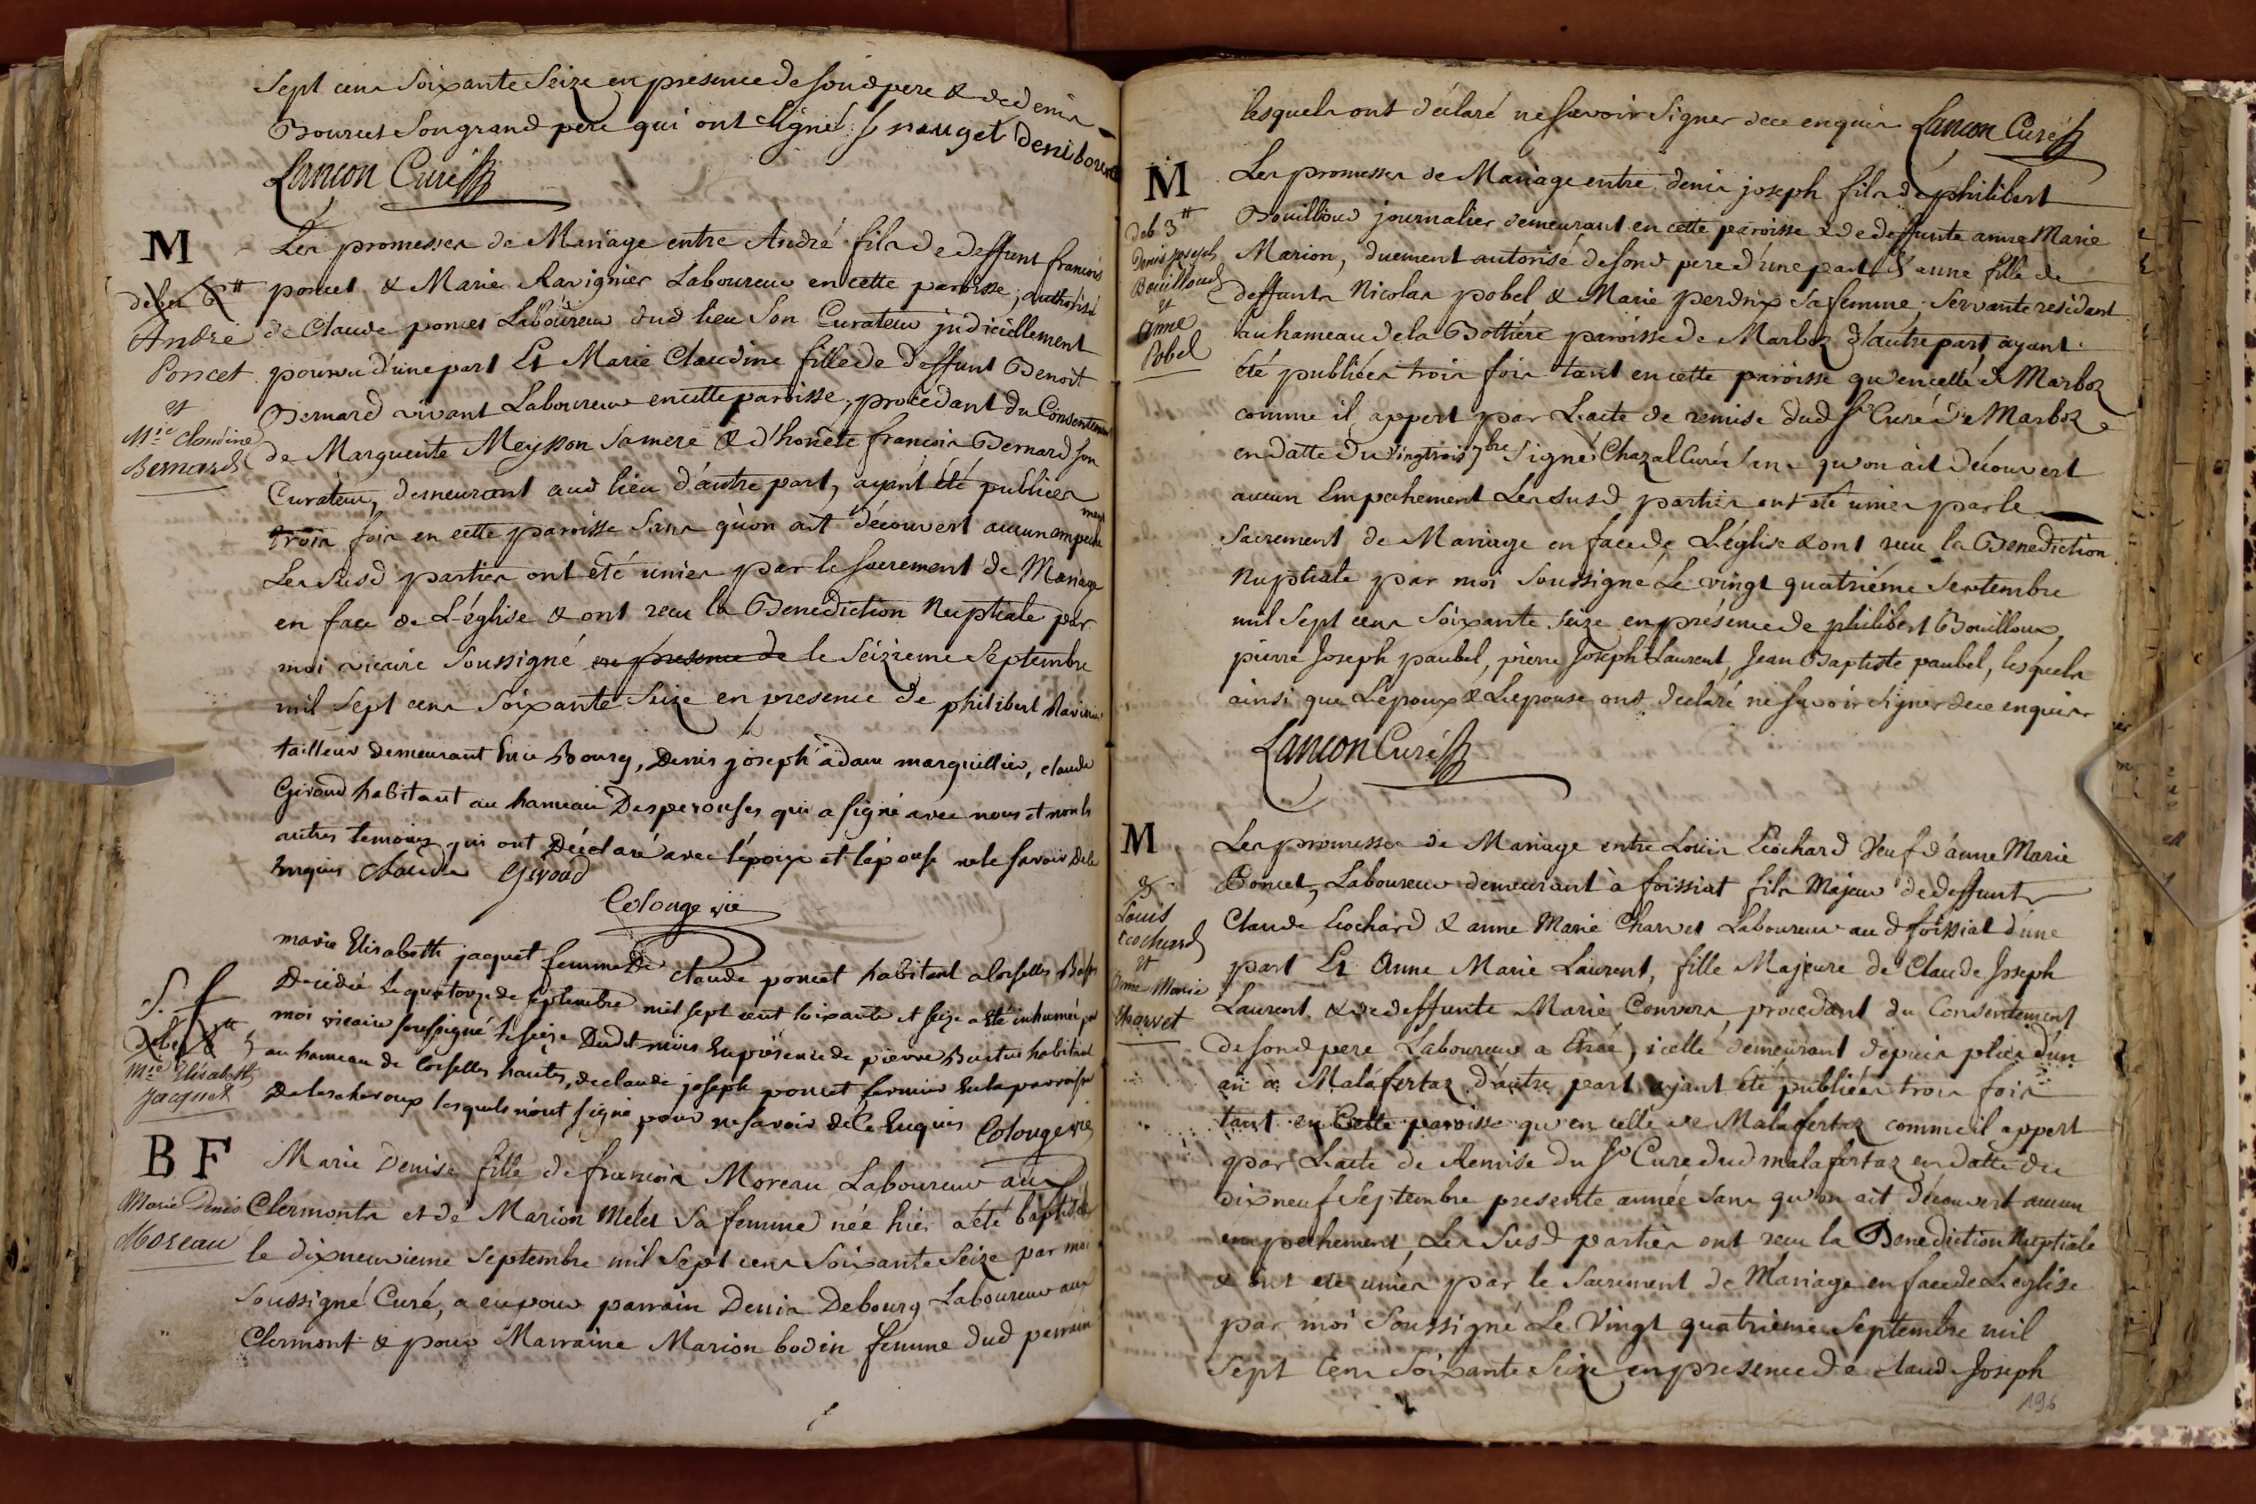 sept cens soixante seize en presence de sond pere & de denis
Bourcet son grand pere qui ont signé J nauget Deni bourcet
Lancon Curé
M
debet 6tt
André
Poncet
et
Mie Claudine
Bernard
Les promesses de Mariage entre André fils de deffunt francois
poncet & Marie Ravignier Laboureur en cette paroisse, authorisé
de Claude poncet Laboureur dud lieu Son Curateur judiciellement
pourvu d'une part Et Marie Claudine fille de deffunt Benoit
Bernard vivant Laboureur en cette paroisse, procedant du Consentement
de Marguerite Meysson sa mere & d'honete francois Bernard son
Curateur, demeurant aud lieu d'autre part, ayant été publiées
trois fois en cette paroisse sans qu'on ait découvert aucun empeche
ment
Les susd parties ont été unies par le sacrement de Mariage
en face de L'église & ont recu la Benediction Nuptiale par
moi vicaire soussigné en presence de le seizieme Septembre
mil sept cens soixante seize en presence de philibert Ravinier
tailleur demeurant En ce Bourg, Denis joseph adam marguillier, claude
Giroud habitant au hameau Desperouses qui a signé avec nous et non les
autres temoins qui ont Déclaré avec l'époux et l'épouse ne le savoir De ce
Enquis Claude Giroud
Colonge vic
S. f
debet tt
Mie Elisabeth
Jacquet
marie Elisabeth jaquet femme De claude poncet habitant a Corselles Basses
Decedée le quatorze de septembre mil sept cent soixante et seize a Eté inhumée par
moi vicaire soussigné le seize Dudit mois En presence de pierre Buatus habitant
au hameau de Corselles hautes, de claude joseph poncet fermier En la parroisse
De lescheroux lesquels n'ont signé pour ne savoir de Ce Enquis Colonge vic
B F
Marie Denise
Moreau
Marie Denise fille de francois Moreau Laboureur aux
Clermonts et de Marion Melet sa femme née hier a été baptisée
le dix neuvieme Septembre mil sept cens soixante seize par moi
soussigné Curé, a eu pour parrain Denis Debourg Laboureur aux
Clermont & pour Marraine Marion bodin femme dud perrain
lesquels ont déclaré ne savoir signer de ce enquis Lancon Curé
M
deb 3tt
Denis joseph
Bouilloud
et
Anne
Pobel
Les promesses de Mariage entre denis joseph fils de philibert
Bouilloud journalier demeurant en cette paroisse & de deffunte anne Marie
Marion, duement autorisé de sond pere d'une part Et anne fille de
deffunts Nicolas pobel & Marie perdrix sa femme, servante residant
au hameau de la Bottiére paroisse de Marboz d'autre part, ayant
été publiées trois fois tant en cette paroisse qu'en celle de Marboz
comme il appert par L'acte de remise dud Sr Curé de Marboz
en datte du vingtrois 7bre Signé Chazal Curé sans qu'on ait découvert
aucun Empechement Les susd parties ont été unies par le
sacrement de Mariage en face de L'église & ont recu la Benediction
Nuptiale par moi soussigné Le vingt quatriéme Septembre
mil sept cens soixante seize en présence de philibert Bouilloux,
pierre Joseph paubel, pierre Joseph Laurent, Jean Baptiste paubel, lesquels
ainsi que L'epoux & L'epouse ont declaré ne savoir signer de ce enquis
Lancon Curé
M
Louis
Ecochard
et
Anne Marie
Charvet
Les promesses de Mariage entre Louis Ecochard Veuf d'anne Marie
Poncet, Laboureur demeurant à foissiat fils Majeur de deffunts
Claude Ecochard & anne Marie Charvet Laboureur aud foissiat d'une
part Et Anne Marie Laurent, fille Majeure de Claude Joseph
Laurent & de deffunte Marie Convers, procedant du Consentement
de sond pere Laboureur a Etréé, icelle demeurant depuis plus d'un
an à Malafertaz d'autre part ayant été publiées trois fois
tant en Cette paroisse qu'en celle de Malafertaz comme il appert
par L'acte de Remise du Sr Curé dud malafertaz en datte du
dix neuf Septembre presente année sans qu'on ait découvert aucun
empechement, Les susd parties ont recu la Benediction Nuptiale
& ont été unies par le sacrement de Mariage en face de L'eglise
par moi soussigné Le Vingt quatrieme Septembre mil
sept Cens soixante seize en presence de claude Joseph
196